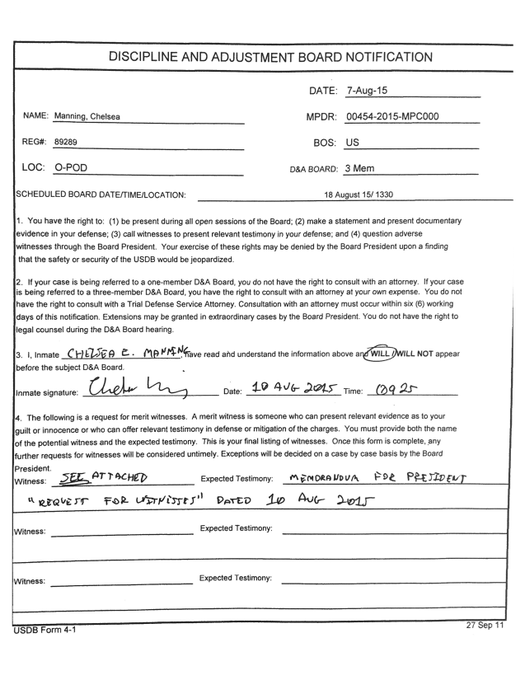 DISCIPLINE AND ADJUSTMENT BOARD NOTIFICATION
DATE: 7-Aug-15
NAME: Manning, Chelsea MPDR: 00454-2015-MPC000
REG#: 89289 BOS: US
LOC: O-POD D&A BOARD: 3 Mem
SCHEDULED BOARD DATE/TIME/LOCATION: 18 August 15/ 1330
1. You have the right to: (1) be present during all open sessions of the Board; (2) make a statement and present documentary
evidence in your defense; (3) call witnesses to present relevant testimony in your defense; and (4) question adverse
witnesses through the Board President. Your exercise of these rights may be denied by the Board President upon a finding
that the safety or security of the USDB would be jeopardized.
2. If your case is being referred to a one-member D&A Board, you do not have the right to consult with an attorney. If your case
is being referred to a three-member D&A Board, you have the right to consult with an attorney at your own expense. You do not
have the right to consult with a Trial Defense Service Attorney. Consultation with an attorney must occur within six (6) working
days of this notification. Extensions may be granted in extraordinary cases by the Board President. You do not have the right to
legal counsel during the D&A Board hearing.
3. I, Inmate CHELSEA E. MANNING have read and understand the information above and WILL / WILL NOT appear
before the subject D&A Board.
Inmate signature: Date: 10 AUG 2015 Time: 0925
4. The following is a request for merit witnesses. A merit witness is someone who can present relevant evidence as to your
guilt or innocence or who can offer relevant testimony in defense or mitigation of the charges. You must provide both the name
of the potential witness and the expected testimony. This is your final listing of witnesses. Once this form is complete, any
further requests for witnesses will be considered untimely. Exceptions will be decided on a case by case basis by the Board
President.
Witness: SEE ATTACHED Expected Testimony: MEMORANDUM FOR PRESIDENT
"REQUEST FOR WITNESSES" DATED 10 AUG 2015
Witness: Expected Testimony:
Witness: Expected Testimony:
USDB Form 4-1 27 Sep 11